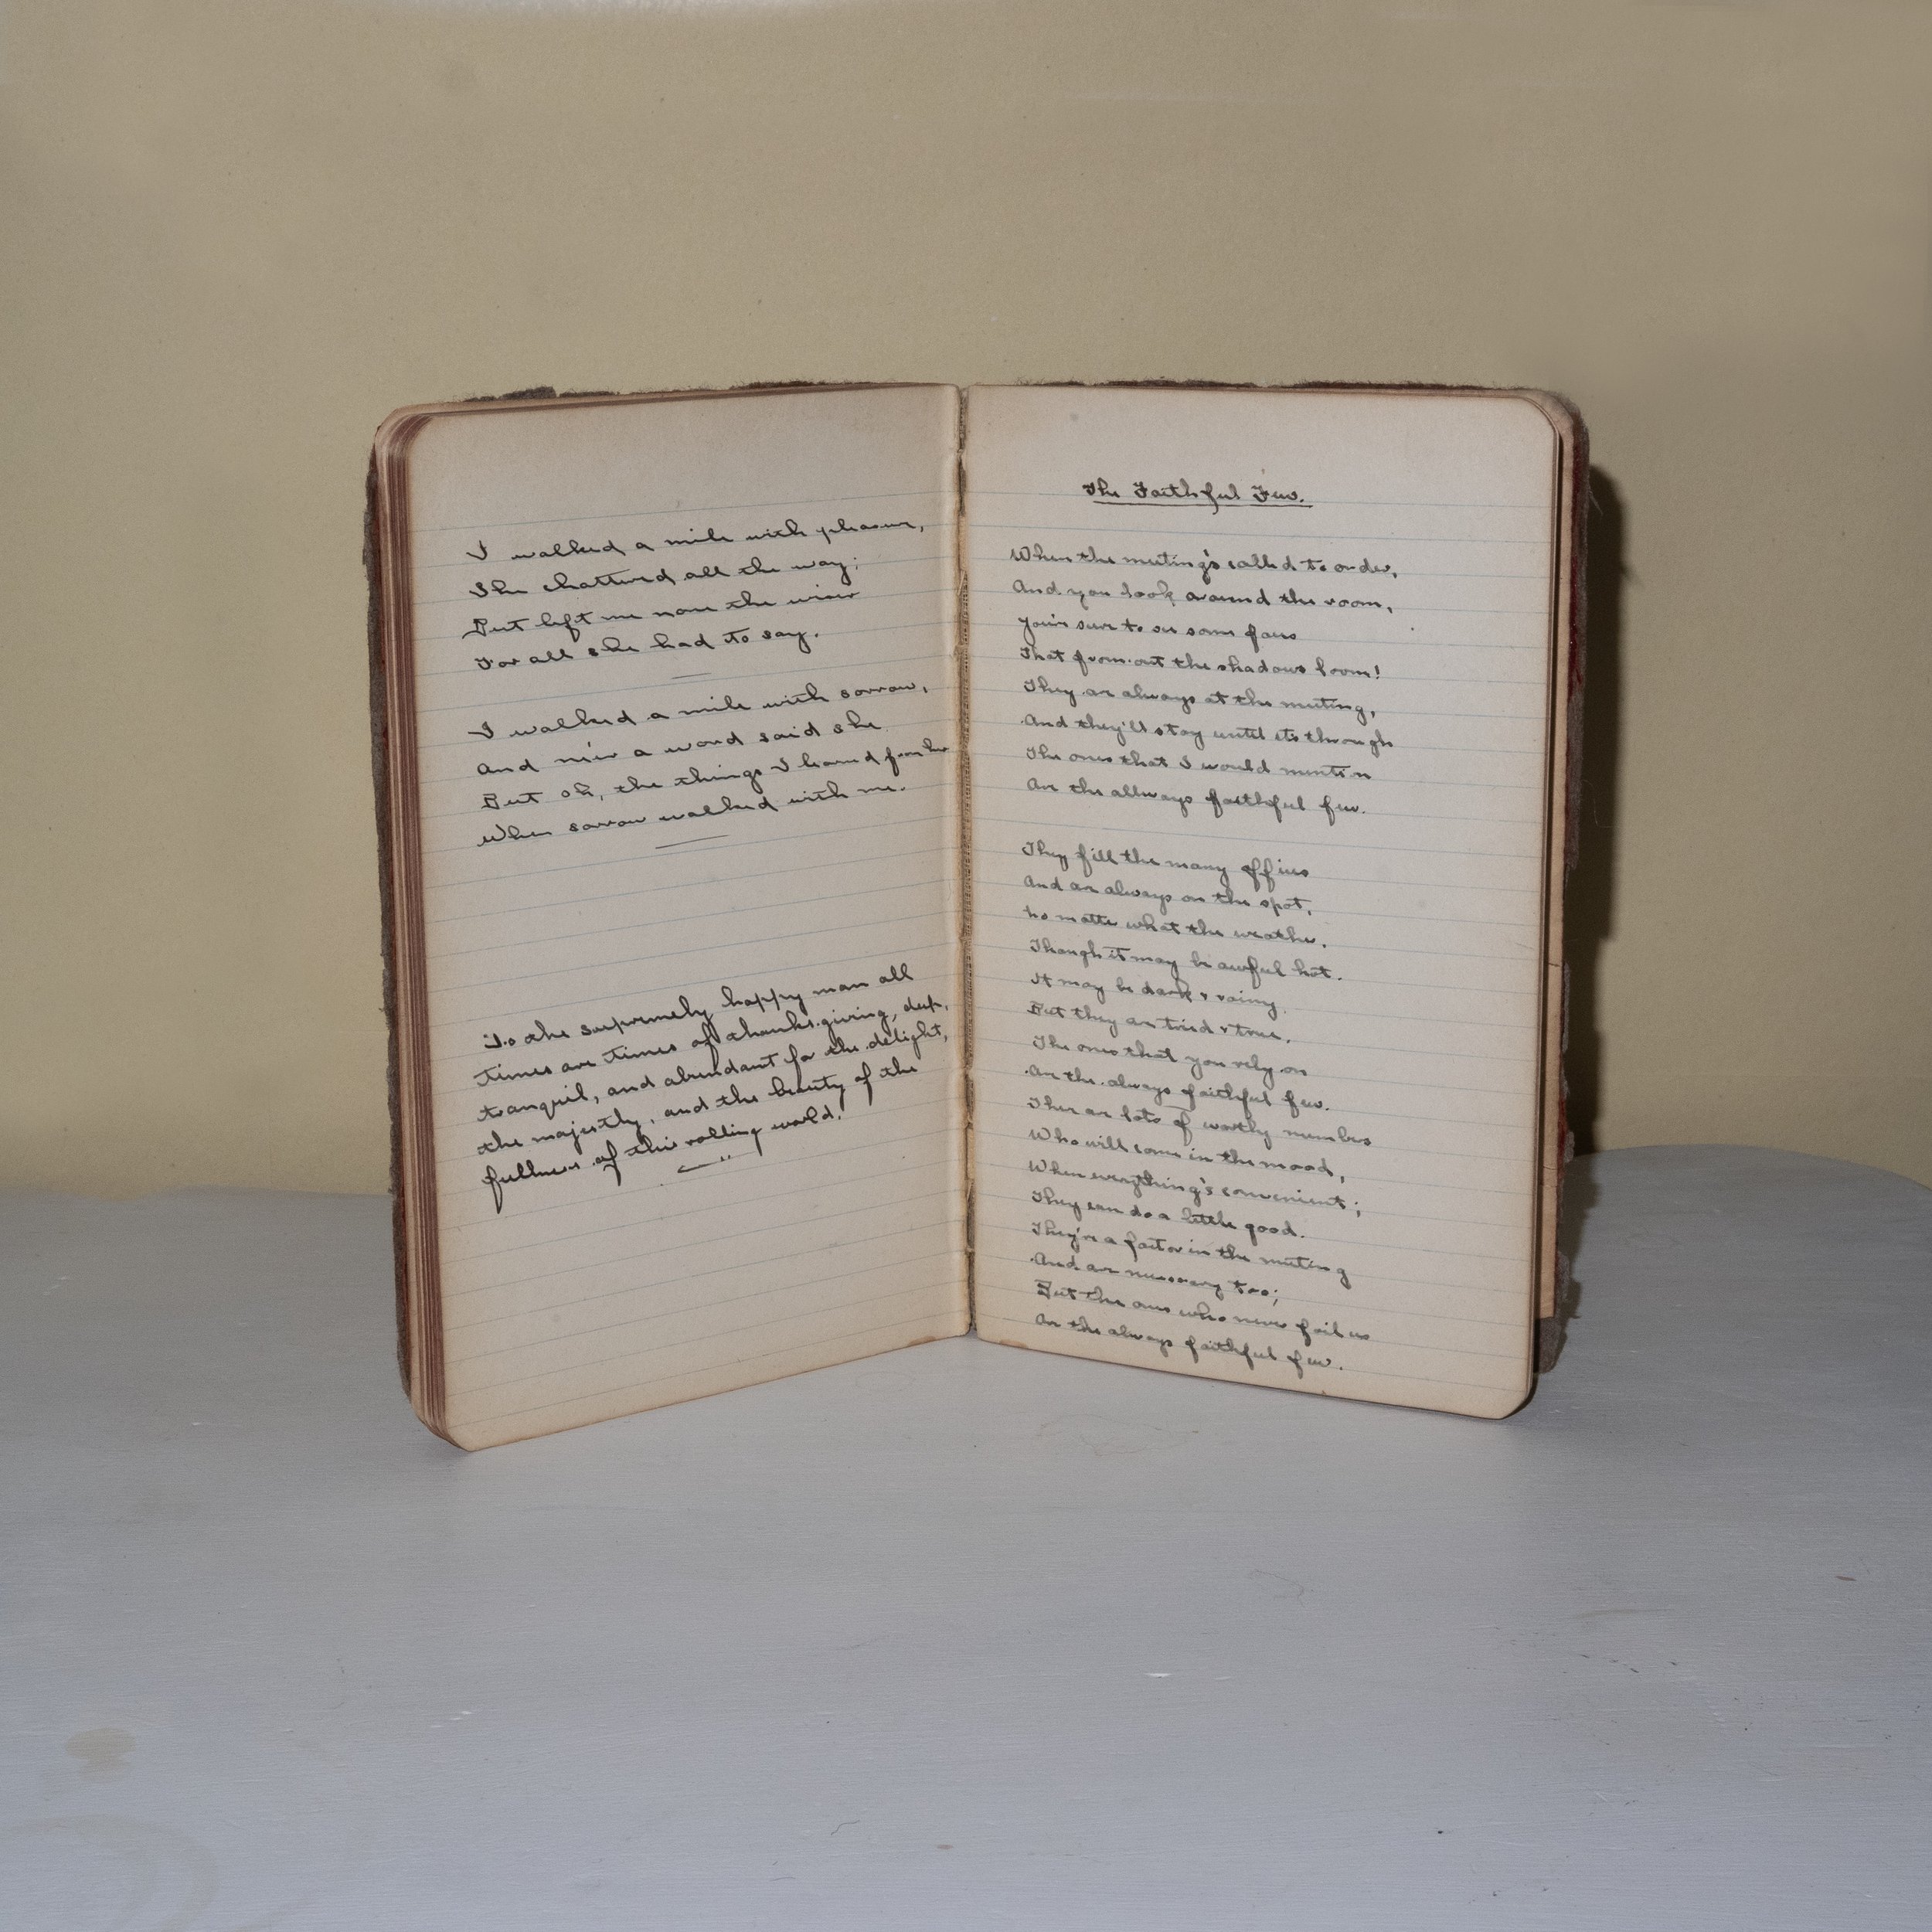 I walked a mile with pleasure,
She chattered all the way;
But left me none the wiser
For all she had to say.
I walked a mile with sorrow,
And ne'er a word said she
But oh, the things I learned from her
When sorrow walked with me.
To the supremely happy man all
times are times of thanksgiving, deep,
tranquil, and abundant for the delight,
the majesty, and the beauty of the
fullness of this rolling world.
The Faithful Few.
When the meeting's called to order,
And you look around the room,
You're sure to see some faces
That from out the shadows loom!
They are always at the meeting,
And they'll stay until its through
The ones that I would mention
Are the allways faithful few.
They fill the many offices
And are always on the spot,
No matter what the weather.
Though it may be awful hot.
It may be dark & rainy
But they are tried & true.
The ones that you rely on
Are the always faithful few.
There are lots of worthy members
Who will come in the mood,
When everything's convenient;
They can do a little good.
They're a factor in the meeting
And are necessary too;
But the ones who never fail us
Are the always faithful few.